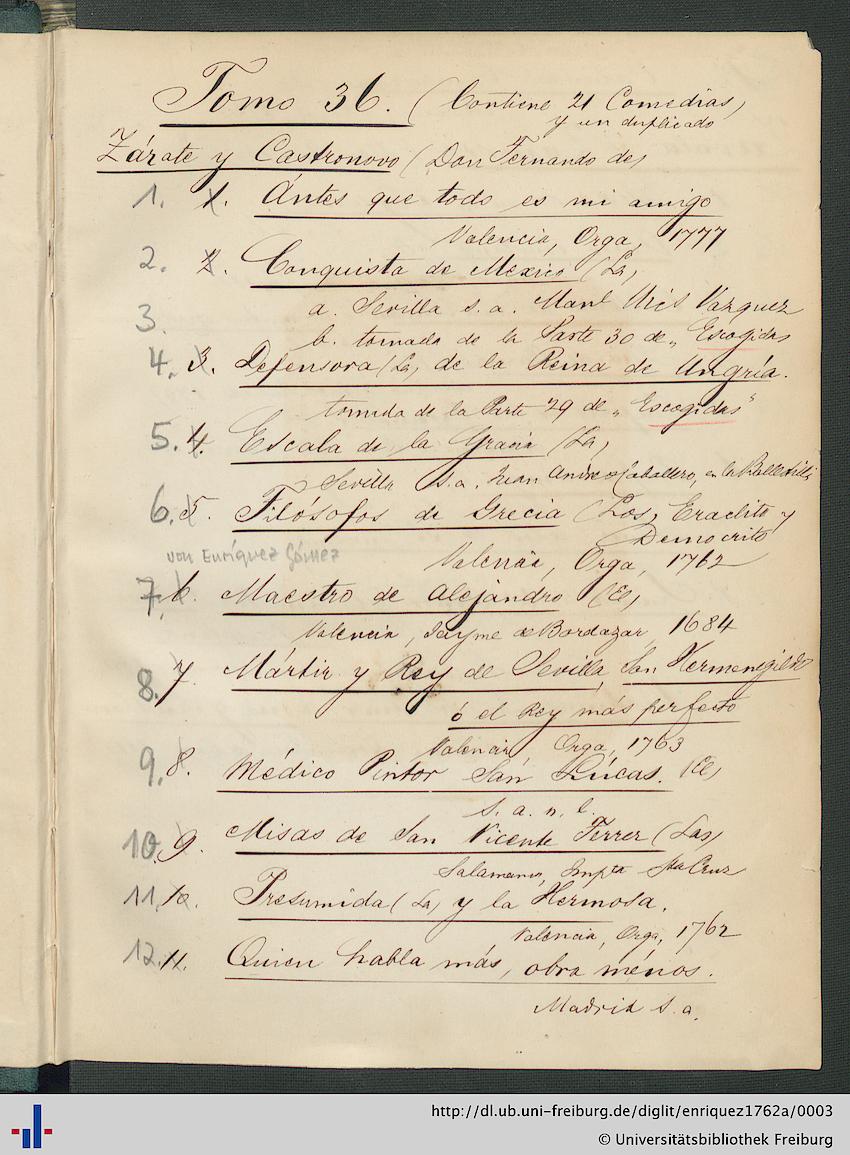 Tomo 36. (Contiene 21 Comedias)
y un duplicado
Zárate y Castronovo (Don Fernando de)
1. 1. Ántes que todo es mi amigo
Valencia, Orga, 1777
2. 2. Conquista de Mexico (La)
a. Sevilla s. a. Manl Vazquez
3. b. tomada de la Parte 30 de „Escogidas
4. 3. Defensora (La) de la Reina de Ungría.
tomada de la Parte 29 de „Escogidas"
5. 4. Escala de la Gracia (La)
Sevilla s. a. Juan Caballero, en la
6. 5. Filósofos de Grecia (Los) Eraclito y
Democrito
von Enríquez Gómez
Valencia, Orga, 1762
7. 6. Maestro de Alejandro (El)
Valencia, Jayme de Bordazar 1684
8. 7. Mártir y Rey de Sevilla, San Hermenegildo
ó el Rey más perfecto
Valencia Orga, 1763
9. 8. Médico Pintor San Lúcas. (El)
s. a. n. l.
10. 9. Misas de San Vicente Ferrer (Las)
Salamanca, Impta Sta Cruz
11. 10. Presumida (La) y la Hermosa.
Valencia, Orga, 1762
12. 11. Quien habla más, obra ménos.
Madrid s. a.
http://dl.ub.uni-freiburg.de/diglit/enriquez1762a/0003
© Universitätsbibliothek Freiburg